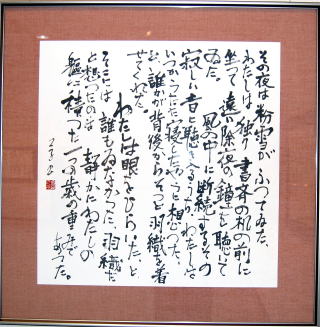 その夜は粉雪がふつてゐた。
わたしは独り書斎の机の前に
坐つて遠い除夜の鐘を聴いて
ゐた。風の中に断続するその
寂しい音を聴くうちわたしは
いつかうたた寝と想つた。
誰かが背後からそつと羽織を着
せてくれた。
わたしは眼をひらいた。と
そこには誰もゐなかつた。羽織だ
と想つたのは静かにわたしの
軀に積つた一つの歳の重みで
あつた。